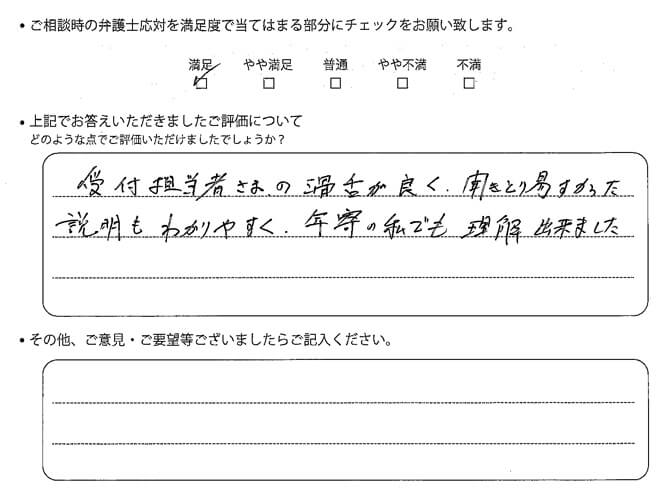 • ご相談時の弁護士応対を満足度で当てはまる部分にチェックをお願い致します。
満足 やや満足 普通 やや不満 不満
• 上記でお答えいただきましたご評価について
どのような点でご評価いただけましたでしょうか？
受付担当者さまの滑舌が良く、聞きとり易すかった
説明もわかりやすく、年寄の私でも理解出来ました
• その他、ご意見・ご要望等ございましたらご記入ください。